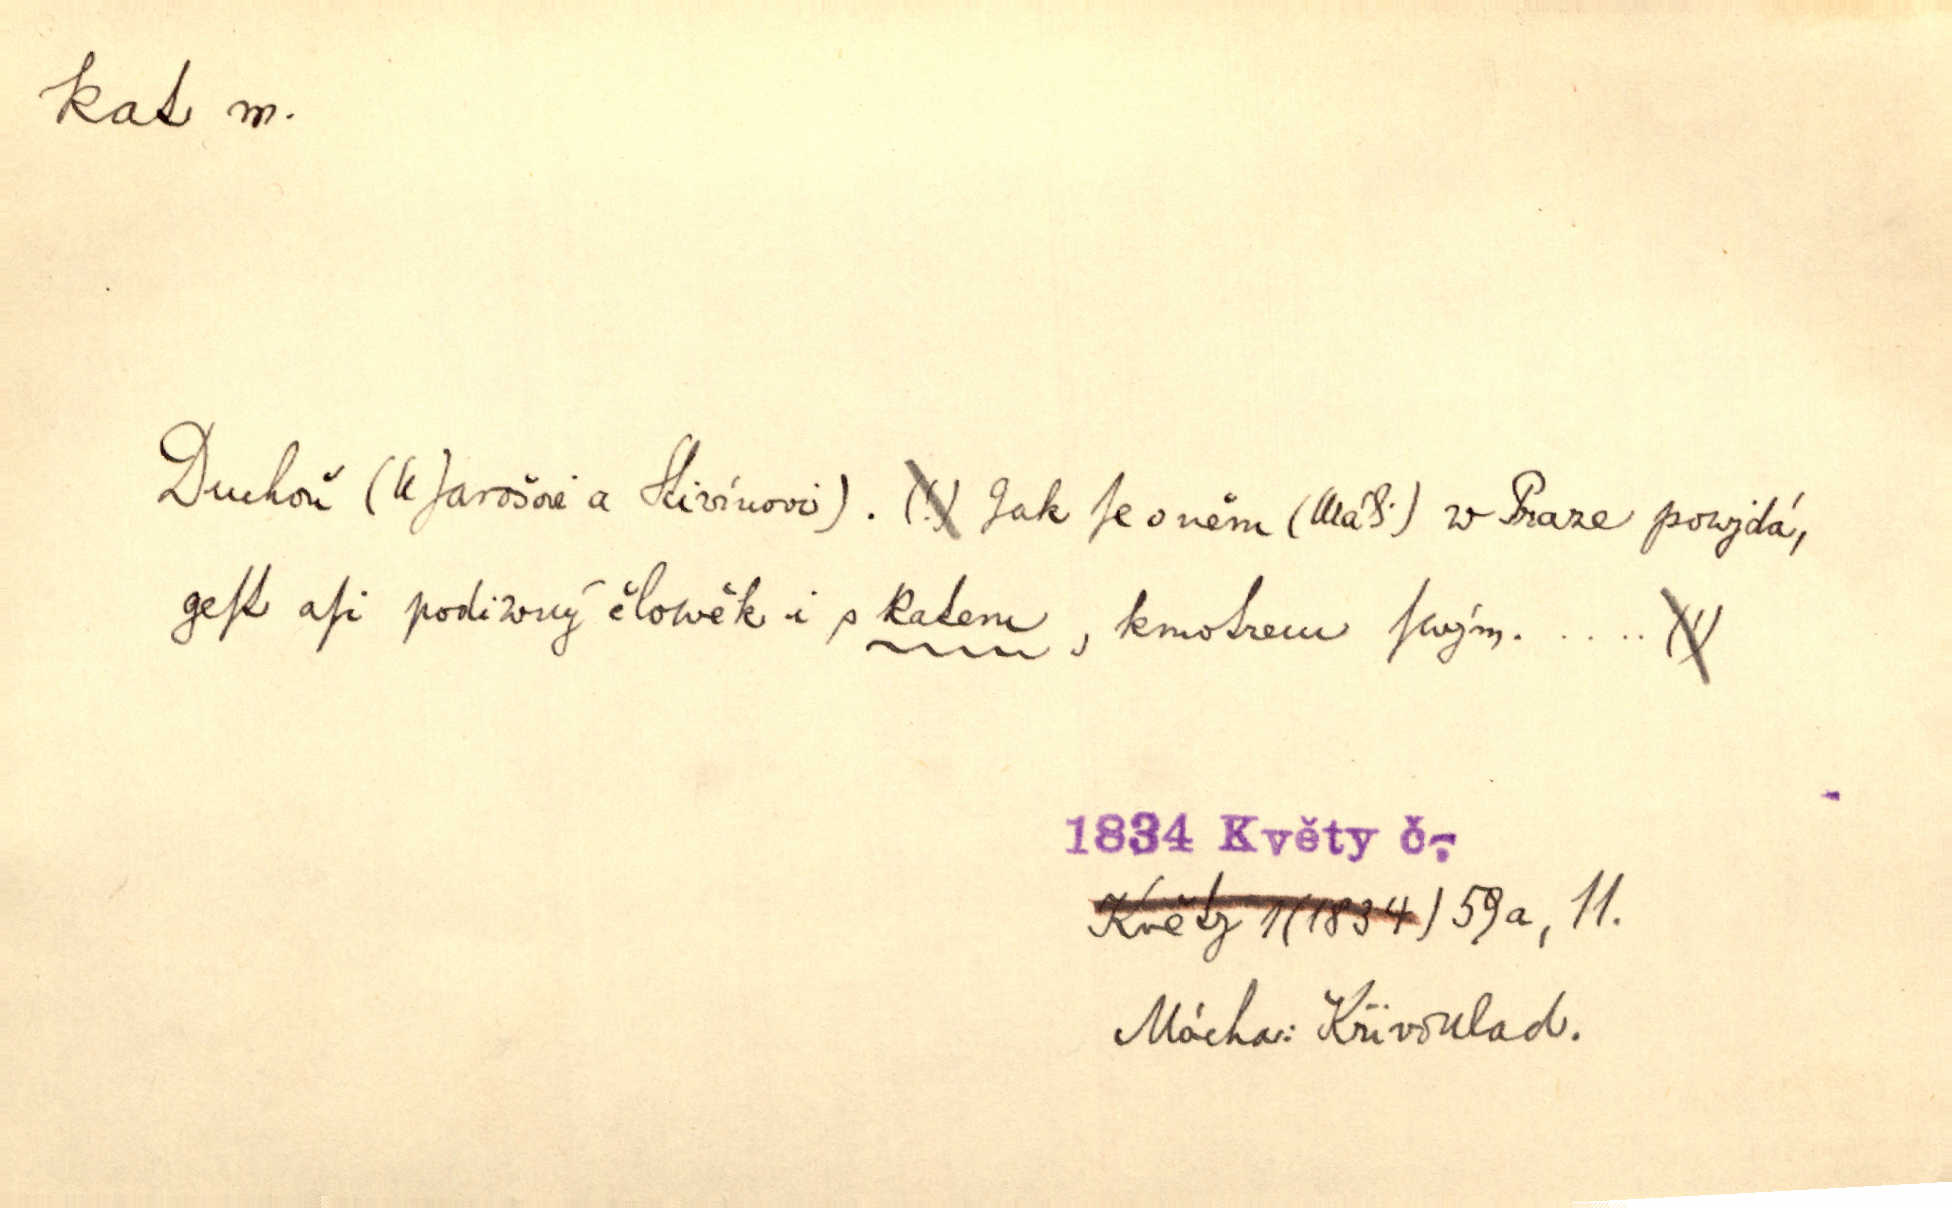 kat m.
Duchoň (k Jarošovi a Skivínovi). (!) Jak ſe o něm (Máš.) w Praze powjdá,
geſt aſi podiwný člowěk i s katem, kmotrem ſwým. .... (!)
1834 Květy č.
Květy 1(1834) 59a, 11.
Mácha: Křivoklad.